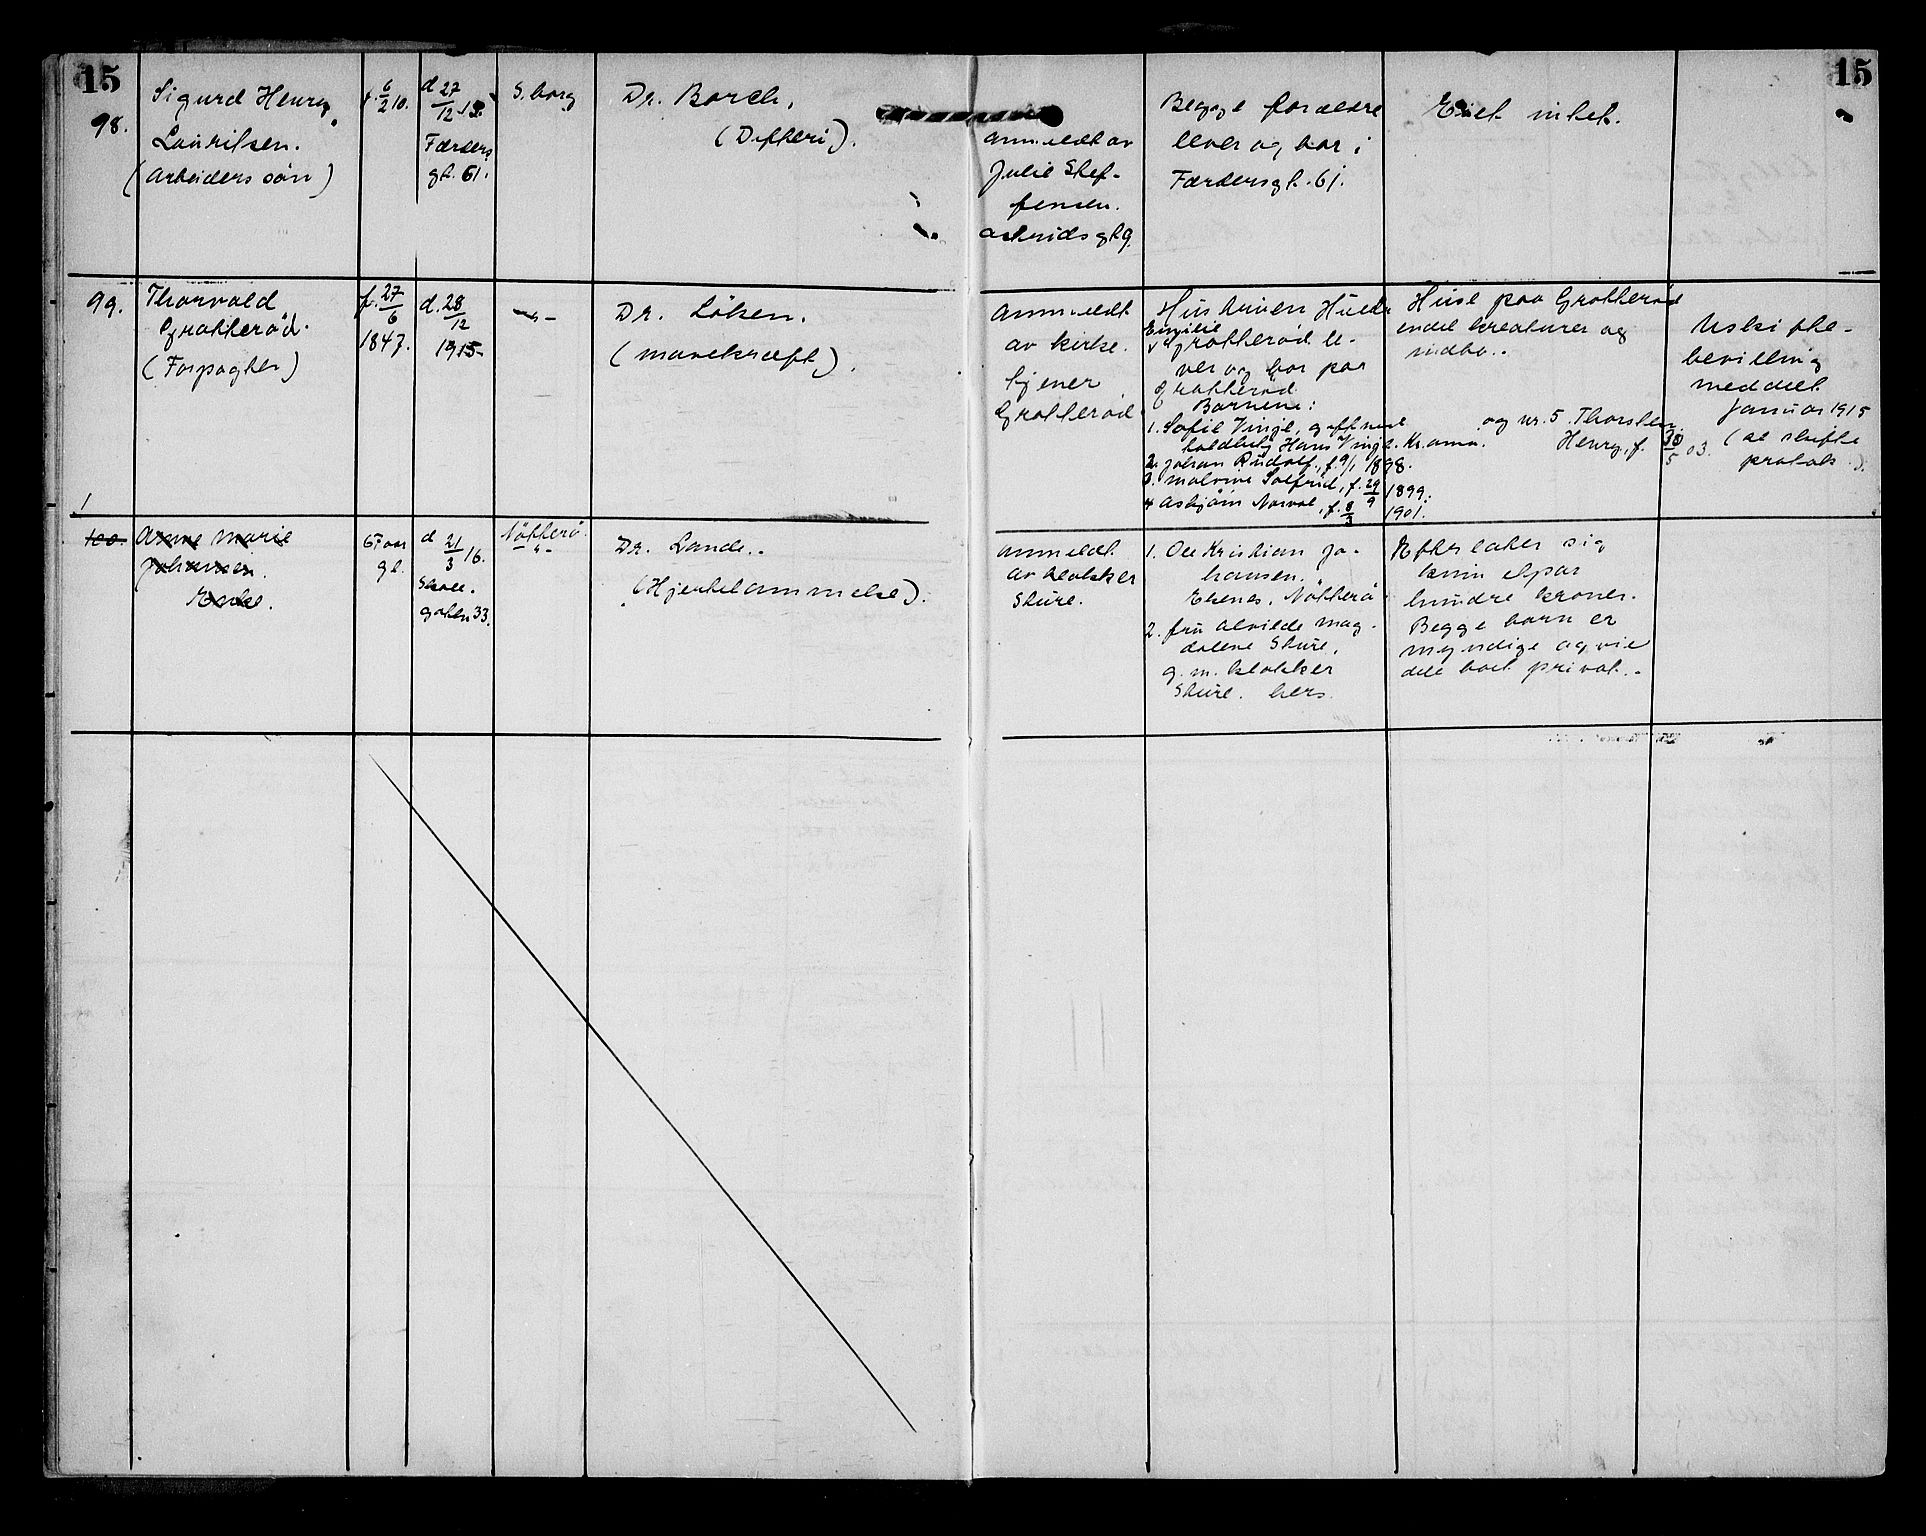 15
15
98.
Sigurd Henry
Lauritsen.
(Arbeiders søn)
f. 6/2 10.
d 27/12
Færders
gt. 61.
S. borg
Dr. Borch.
(Difteri).
anmeldt av
Julie Stef-
fensen.
Begge forældre
lever og bor i
Færdersgt. 61.
Eiet intet.
99.
Thorvald
Grotterød.
(Forpagter)
f. 27/6
1847.
d. 28/12
1915
-"-
Dr. Löken.
(mavekræft).
Anmeldt
av kirke-
tjener
Grotterød
Hustruen
Emilie
Grotterød le-
ver og bor paa
Grotterød.
Barnene:
1. Sofie Vinge, gift med
Hans Vinge. Kr.ania.
2. Johan Rudolf, f. 9/1 1898.
3. Malvine Solfrid, f. 29/9 1899.
4 Asbjörn Norval, f. 8/3 1901.
og nr. 5. Thorstein
Henry, f. 30/5 03.
Huse paa Grotterød
endel kreaturer og
indbo.
Uskifte-
bevilling
meddelt
Januar 1915
(se skifte
protok.).
1
100.
Anne Marie
Johansen.
Enke.
67 aar
gl.
d 21/3 16.
Skole-
gaten 33.
Nötterö
-"-
Dr. Lande.
(Hjertelammelse).
Anmeldt
av klokker
Sture.
1. Ole Kristian Jo-
hansen.
Ekenes, Nötterö
2. fru Alvilde Mag-
dalene Sture,
g. m. klokker
Sture. hers.
Efterlater sig
kun et par
hundre kroner.
Begge barn er
myndige og vil
dele boet privat.